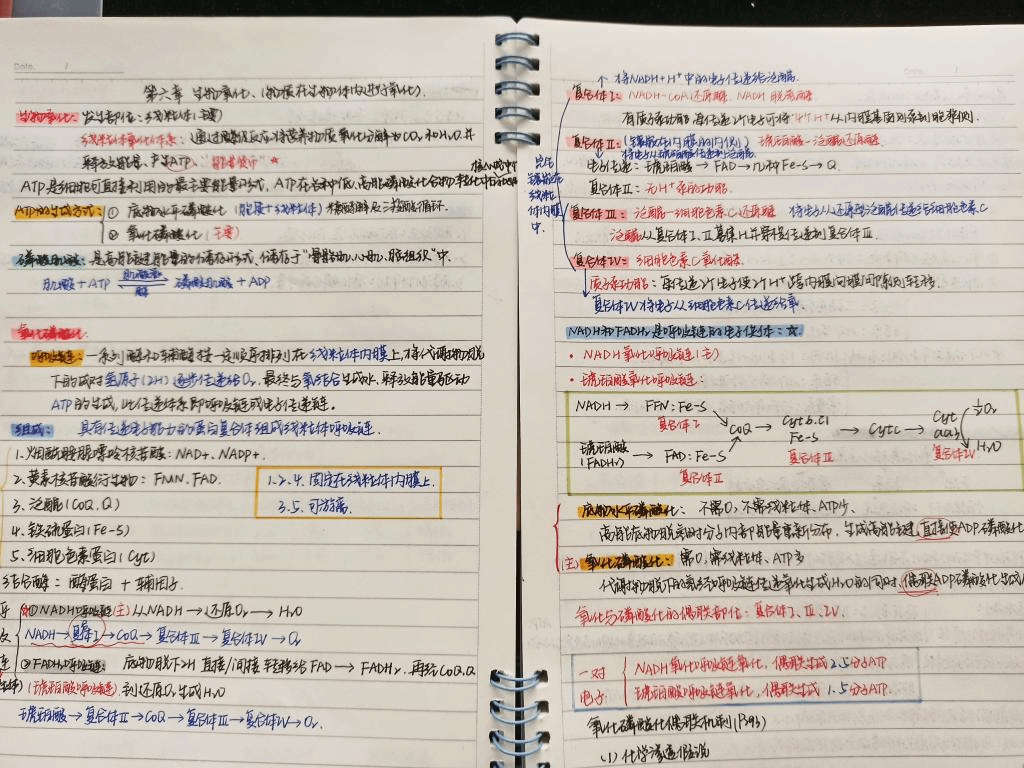 Date. /
第六章 生物氧化、(物质在生物体内进行氧化).
生物氧化: 发生部位:线粒体(主要)
线粒体氧化体系: 通过酶促反应将营养物质氧化分解为CO₂和H₂O,并
释放能量,产生ATP、"能量货币" ★
ATP是细胞可直接利用的最主要能量形式,
ATP的生成方式: ① 底物水平磷酸化 (胞质+线粒体) 糖酵解及三羧酸循环.
② 氧化磷酸化 (主要)
磷酸肌酸: 是高能键能量的储存形式,储存于"骨骼肌、心肌、脑组织"中.
肌酸+ATP 肌酸激酶 磷酸肌酸+ADP
氧化磷酸化:
呼吸链: 一系列酶和辅酶按一定顺序排列在线粒体内膜上,将代谢物脱
下的成对氢原子(2H)逐步传递给O₂,最终与氧结合生成水,释放能量驱动
ATP的生成,此传递体系即呼吸链或电子传递链.
组成: 具有传递电子能力的蛋白复合体组成线粒体呼吸链.
1.烟酰胺腺嘌呤核苷酸:NAD+、NADP+.
2.黄素核苷酸衍生物: FMN、FAD.
3.泛醌(CoQ、Q)
4.铁硫蛋白(Fe-S)
5.细胞色素蛋白(Cyt)
1.2.4.固定在线粒体内膜上.
3.5.可游离.
结合酶: 酶蛋白 + 辅因子.
①NADH呼吸链(主)从NADH→还原O₂→H₂O
NADH→复合体I→CoQ→复合体III→复合体IV→O₂
②FADH₂呼吸链: 底物脱下2H直接/间接转移给FAD→FADH₂,再经CoQ,Q
(琥珀酸呼吸链)到还原O₂生成H₂O
琥珀酸→复合体II→CoQ→复合体III→复合体IV→O₂.
↑将NADH+H⁺中的电子传递给泛醌.
复合体I: NADH-CoA还原酶、NADH脱氢酶
有质子泵功能,每传递2个电子可将"4个H⁺"从内膜基质侧泵到胞浆侧.
复合体II: (镶嵌在内膜的内侧) 琥珀酸-泛醌还原酶
将电子从琥珀酸传递到泛醌.
电子传递:琥珀酸→FAD→几种Fe-S→Q.
复合体II: 无H⁺泵的功能.
镶嵌在线粒体内膜中.
复合体III: 泛醌-细胞色素C还原酶 将电子从还原型泛醌传递给细胞色素C
泛醌从复合体I、II募集H,并穿梭传递到复合体III.
复合体IV: 细胞色素C氧化酶.
质子泵功能:每传递2个电子使2个H⁺跨内膜向膜间隙侧转移.
复合体IV将电子从细胞色素C传递给氧.
NADH和FADH₂是呼吸链的电子供体: ★
• NADH氧化呼吸链(主)
• 琥珀酸氧化呼吸链:
NADH → FFN:Fe-S
复合体I
琥珀酸 (FADH₂) → FAD:Fe-S
复合体II
CoQ → Cytb.C1 Fe-S → CytC → Cyt aa3
复合体III
复合体IV
½O₂
H₂O
底物水平磷酸化: 不需O₂不需线粒体、ATP少、
高能底物脱氢时分子内部能量重新分布,生成高能键,直接使ADP磷酸化
(主) 氧化磷酸化: 需O₂需线粒体、ATP多
代谢物脱下的氢经呼吸链传递氧化生成H₂O的同时,偶联ADP磷酸化生成
氧化与磷酸化的偶联部位:复合体I、III、IV
一对电子
NADH氧化呼吸链氧化,偶联生成2.5分子ATP
琥珀酸呼吸链氧化,偶联生成1.5分子ATP.
氧化磷酸化偶联机制(P93)
(1)化学渗透假说